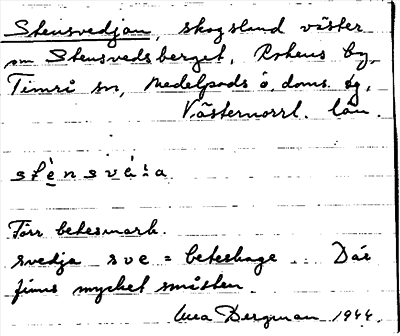 Stensvedjan, skogsland väster
om Stensvedsberget, Rokens by,
Timrå sn, Medelpads ö. doms. dg,
Västernorrl. län.
Förr betesmark.
svedja sve = beteshage Där
finns mycket småsten
Bergman 1944.